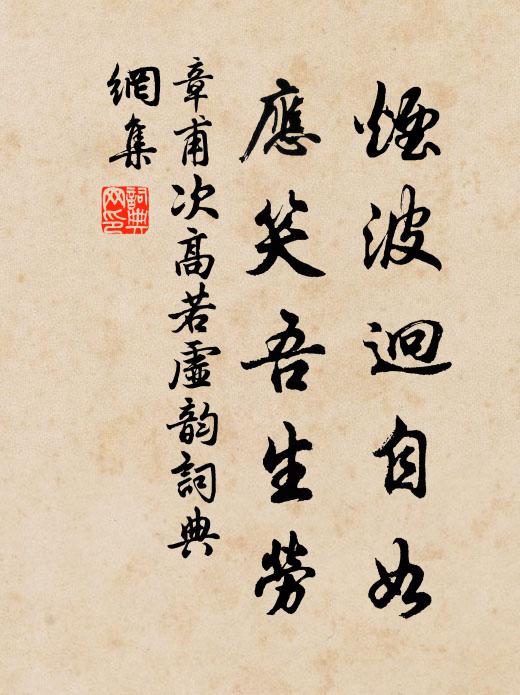 煙波迥自如
應笑吾生勞
章甫次高若虛韵詞典
網集
詞典網印